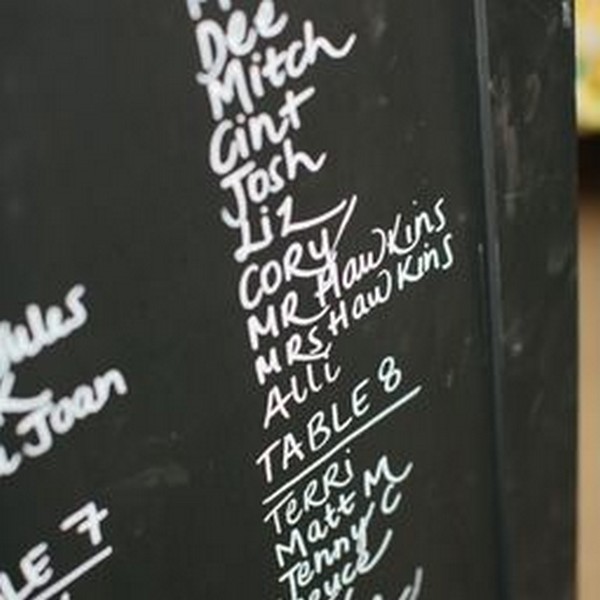 Dee
Mitch
Cint
Josh
Liz
CORY
MR HawKins
MRS HawKins
Alli
TABLE 8
TeRRi
Matt M
Jenny C
Jules
Joan
7